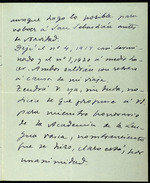 aunque hago lo posible para
volver a San Sebastián antes
de Navidad.
Dejé el nº 4, 1919 casi termi-
nado y el nº 1, 1920 a medio ha-
cer. Ambos saldrán con retraso
a causa de mi viaje.
Tendrá V. ya, sin duda, no-
ticia de que propuse a V.
para miembro honorario
de la Academia de la Len-
gua Vasca, nombramiento
que se hizo, claro está, por
unanimidad.